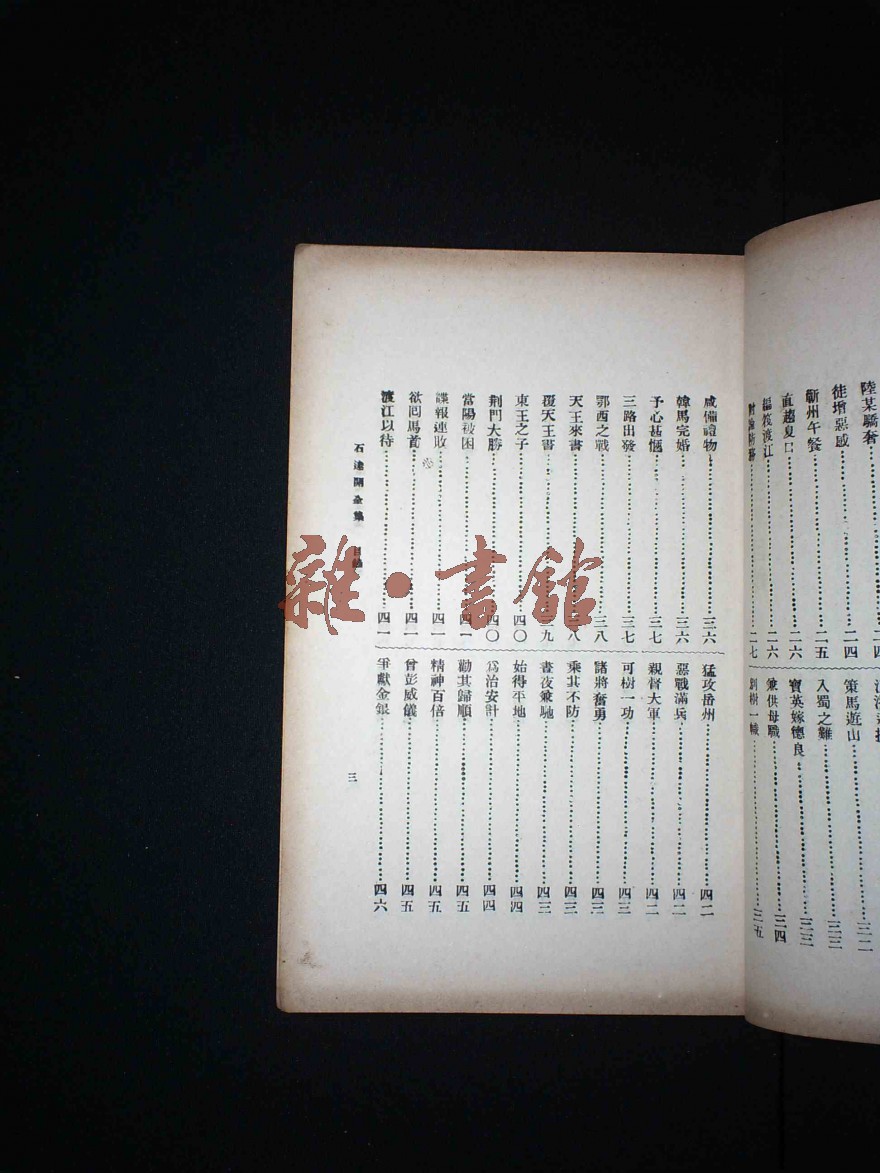 陸某驕奢……二四
徒增惡感……二四
蘄州午餐……二五
直趨夏口……二六
編筏渡江……二六
二七
策馬遊山……三二
入蜀之難……三三
寶英嫁德良……三三
兼供母職……三四
別樹一幟……三五
咸備禮物……三六
韓馬完婚……三六
予心甚愜……三七
三路出發……三七
鄂西之戰……三八
天王來書……三八
覆天王書……三九
東王之子……四〇
荆門大勝……四〇
當陽被困……四一
諜報連敗……四一
欲囘馬首……四一
渡江以待……四一
猛攻岳州……四二
惡戰滿兵……四二
親督大軍……四二
可樹一功……四三
諸將奮勇……四三
乘其不防……四三
晝夜兼馳……四三
始得平地……四四
爲治安計……四四
勸其歸順……四五
精神百倍……四五
曾彭威儀……四五
爭獻金銀……四六
石達開全集 目錄 三
雜·書館